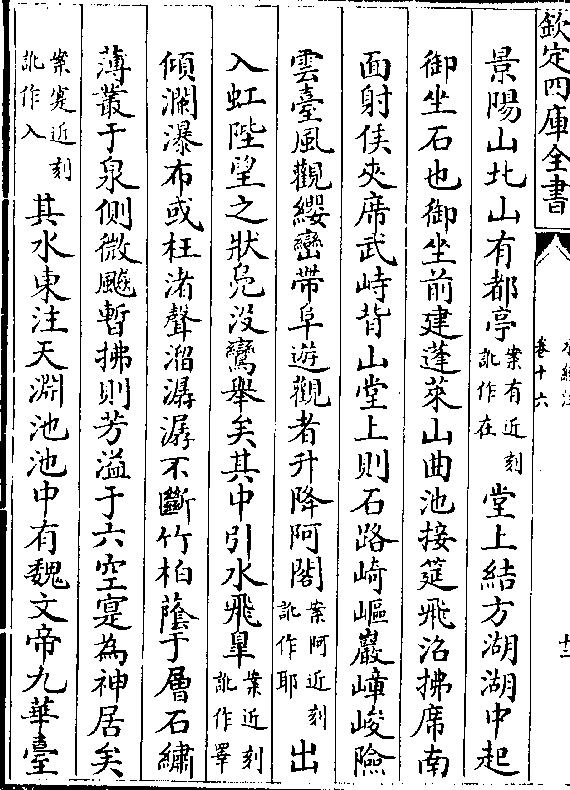 欽定四庫全書
卷十六
十二
景陽山北山有都亭案有近刻訛作在堂上結方湖湖中起
御坐石也御坐前建蓬萊山曲池接筵飛沼拂席南
面射侯夾席武峙背山堂上則石路崎嶇巖嶂峻險
雲臺風觀纓巒帶阜遊觀者升降阿閣案阿近刻訛作耶出
入虹陛望之狀鳧没鸞舉矣其中引水飛臯案近刻訛作睪
傾瀾瀑布或枉渚聲溜潺潺不斷竹柏䕃于層石繡
薄叢于泉側微飈暫拂則芳溢于六空寔為神居矣
案寔近刻訛作入其水東注天淵池池中有魏文帝九華臺